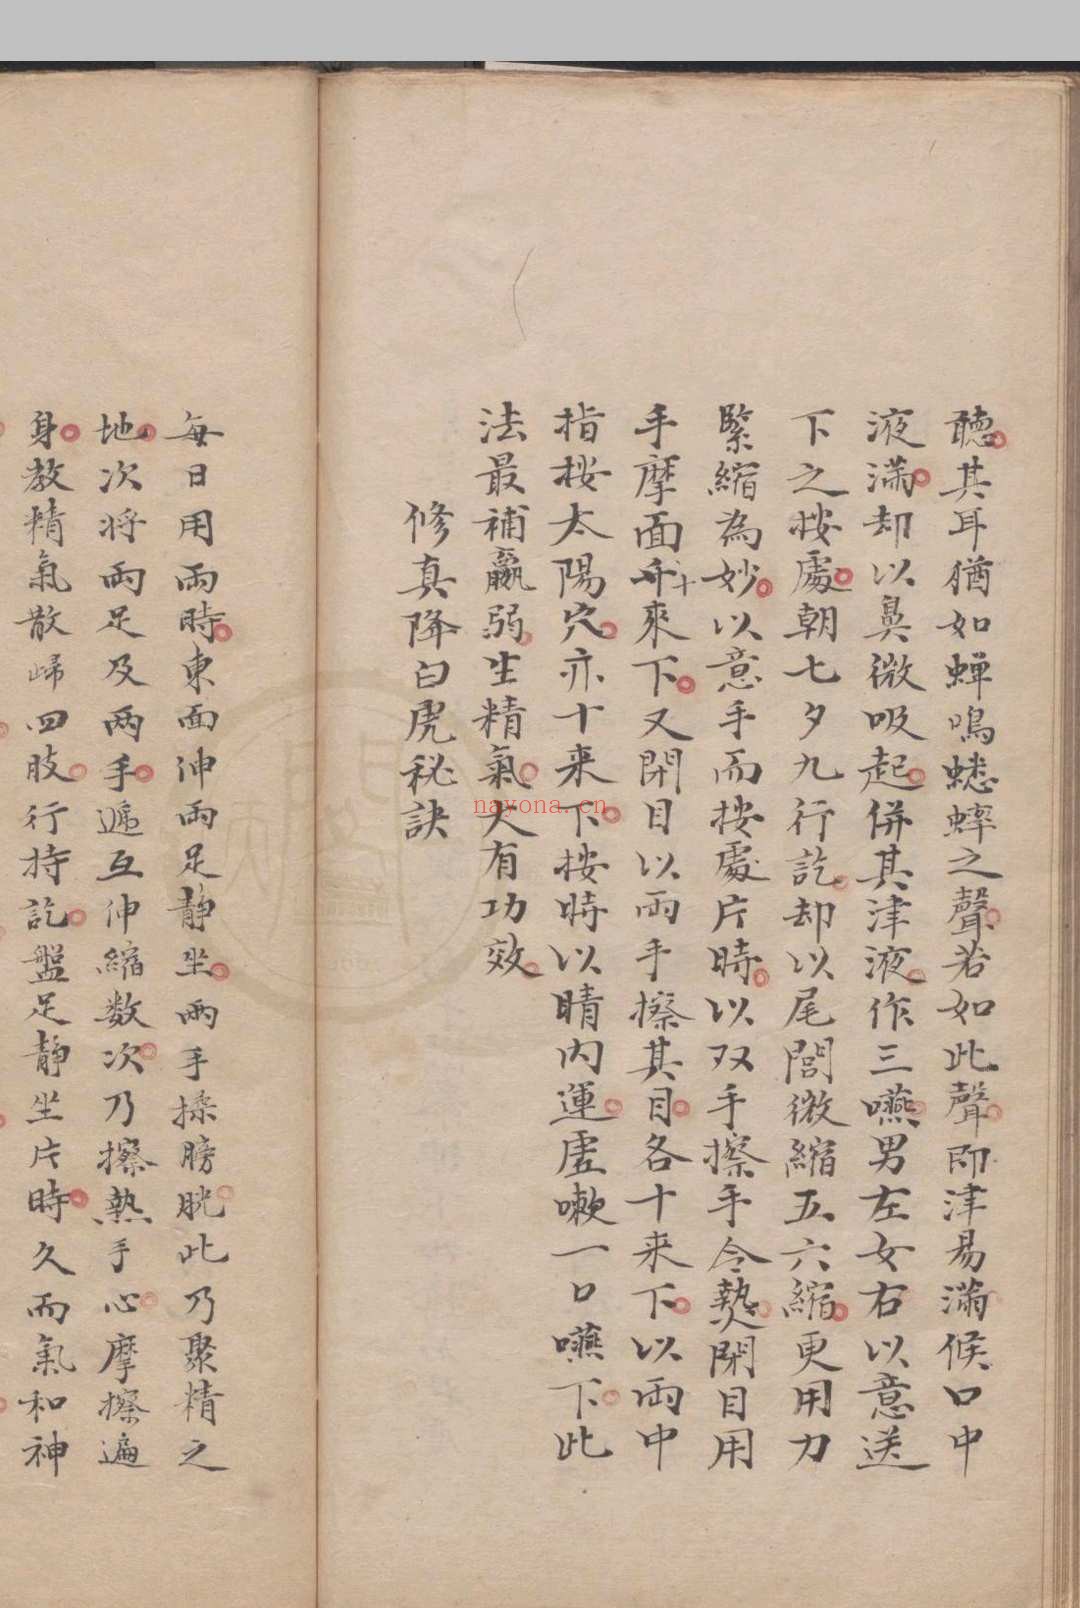 聽其耳猶如蟬鳴蟋蟀之聲若如此聲即津易滿候口中
液滿却以鼻微吸起併其津液作三嚥男左女右以意送
下之按處朝七夕九行訖却以尾閭微縮五六縮更用力
緊縮為妙以意手而按處片時以双手擦手令熱閉目用
手摩面十來下又閉目以兩手擦其目各十来下以兩中
指按太陽穴亦十来下按時以睛内運虛嗽一口嚥下此
法最補羸弱生精氣大有功效
修真降白虎秘訣
每日用兩時東面伸兩足静坐兩手揉膀胱此乃聚精之
地次将兩足及两手遞互伸縮数次乃擦熱手心摩擦遍
身教精氣散歸四肢行持訖盤足静坐片時久而氣和神
nayona.cn